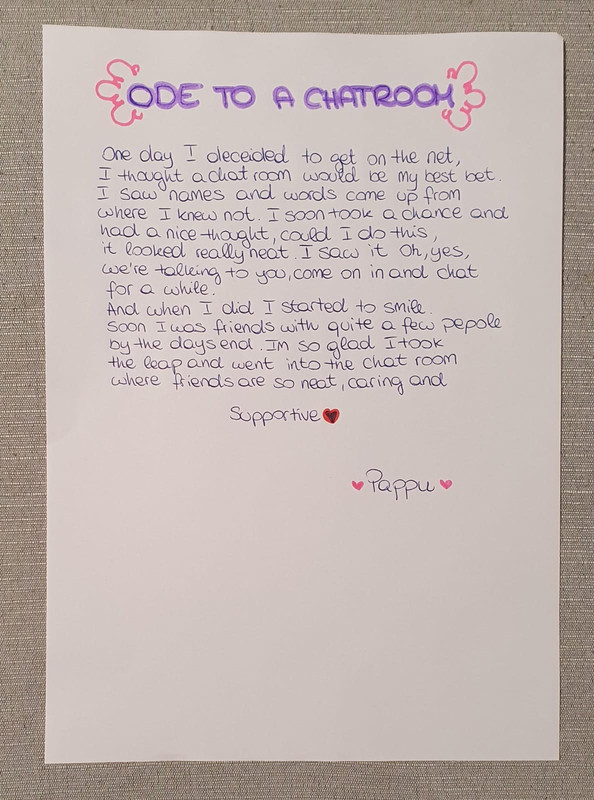 ODE TO A CHATROOM
One day I deceided to get on the net,
I thought a chat room would be my best bet.
I saw names and words come up from
where I knew not. I soon took a chance and
had a nice thought, could I do this,
it looked really neat. I saw it Oh, yes,
we're talking to you, come on in and chat
for a while.
And when I did I started to smile.
Soon I was friends with quite a few pepole
by the days end. Im so glad I took
the leap and went into the chat room
where friends are so neat, caring and
Supportive
Pappu